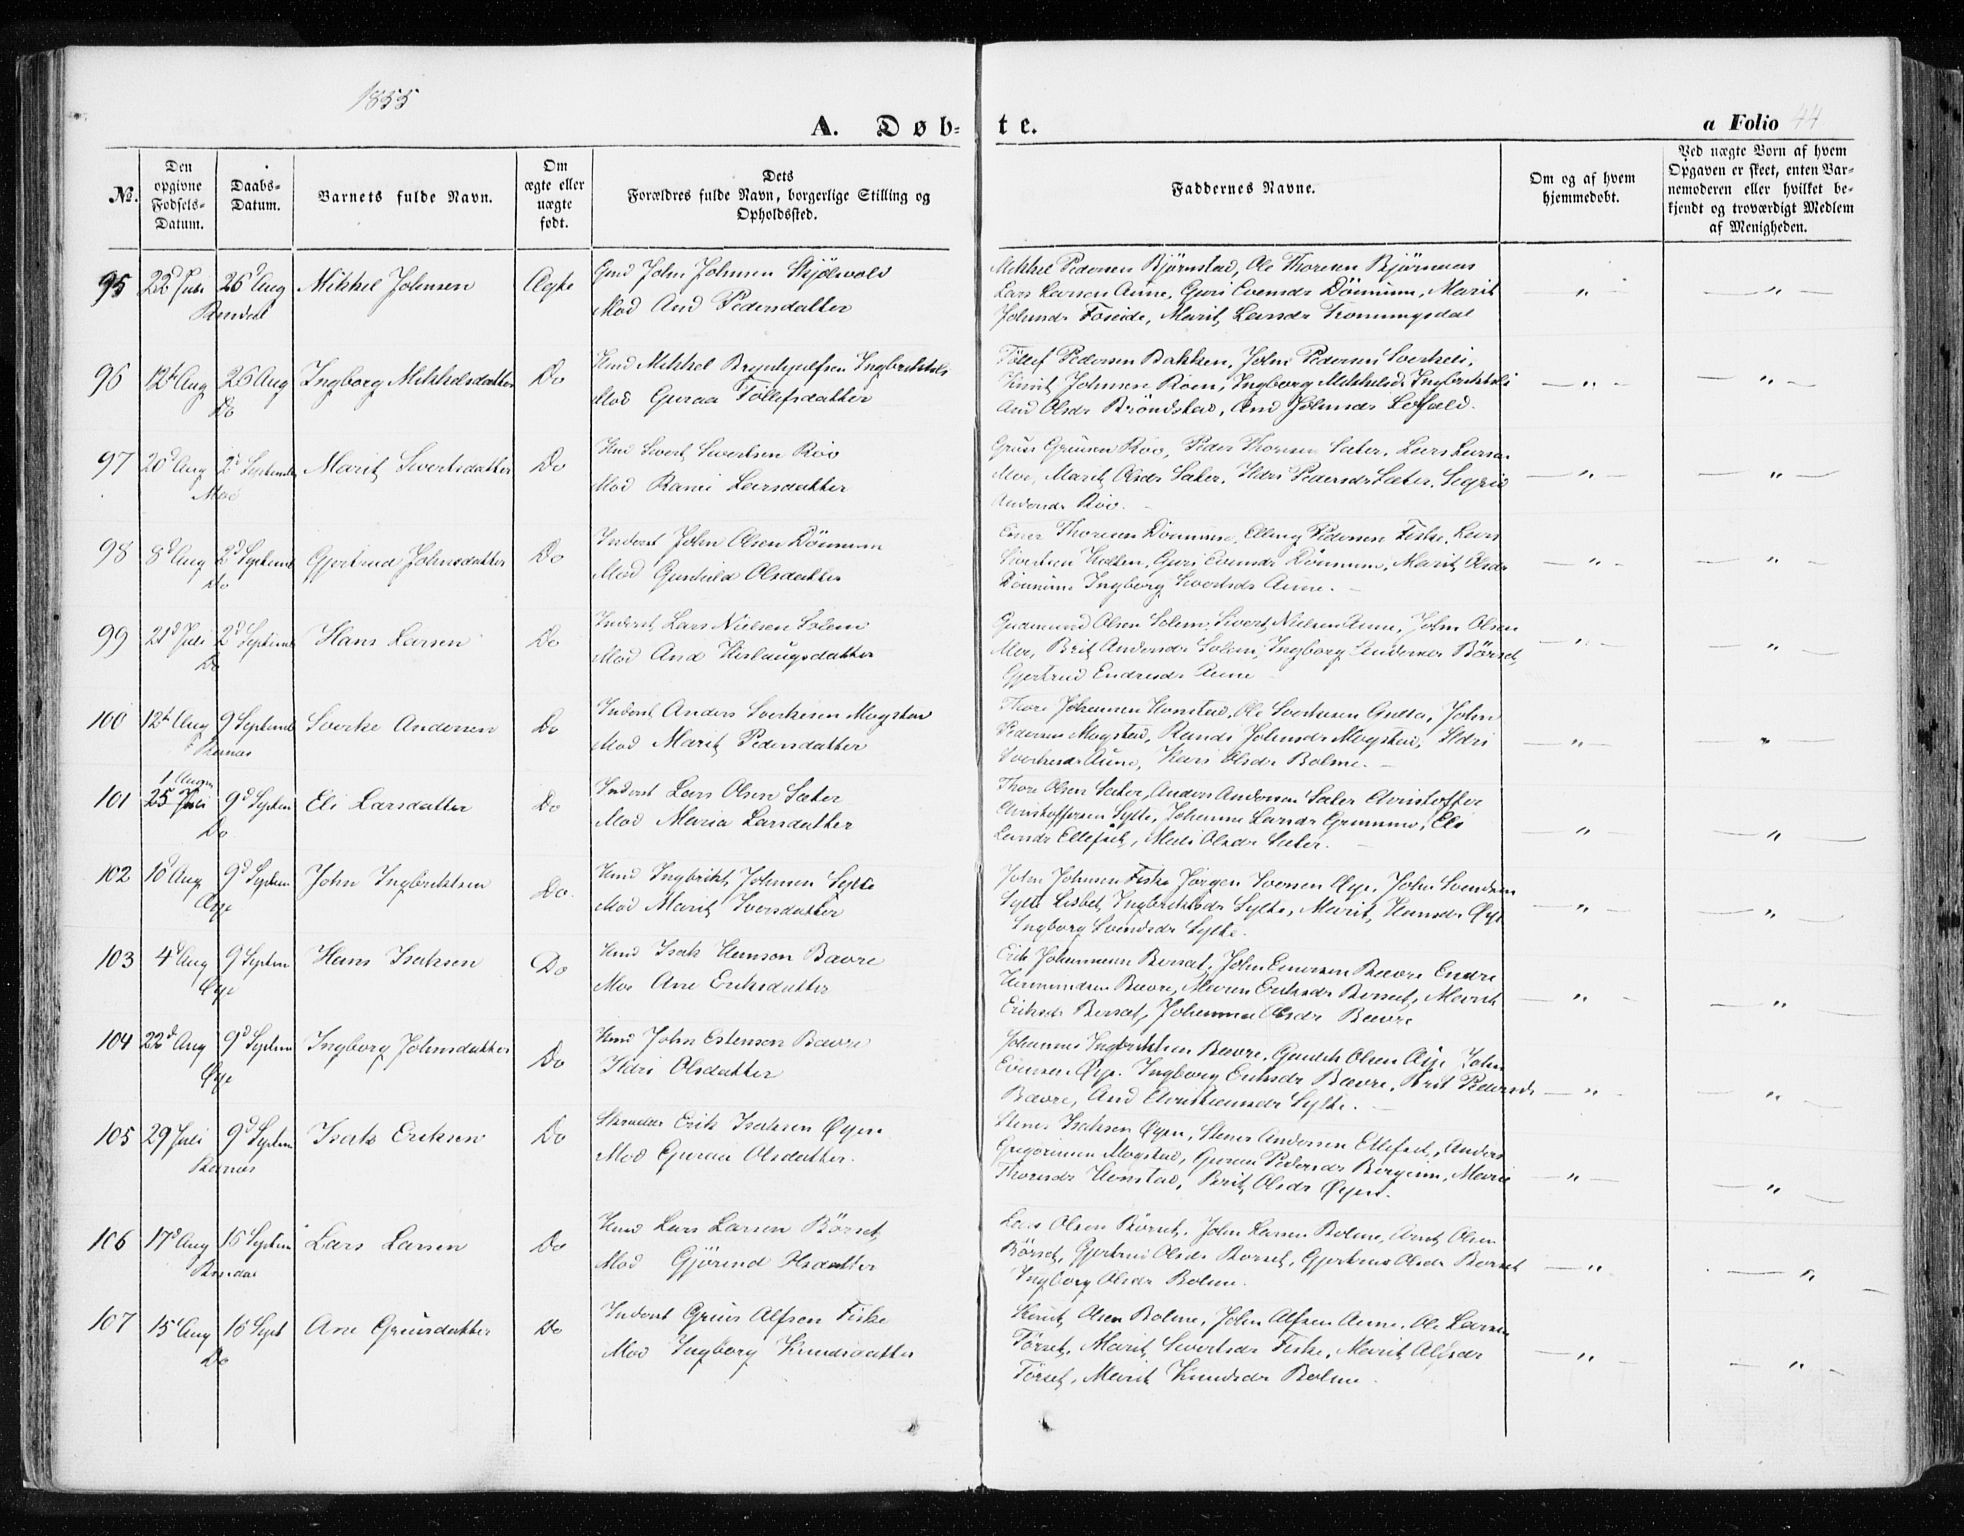 1855
A. Døb-
te.
a Folio 44
№.
Den opgivne Fødsels-Datum.
Daabs-Datum.
Barnets fulde Navn.
Om ægte eller uægte født.
Dets Forældres fulde Navn, borgerlige Stilling og Opholdssted.
Faddernes Navne.
Om og af hvem hjemmedøbt.
Ved uægte Born af hvem Opgaven er skeet, enten Barnemoderen eller hvilket bekjendt og troværdigt Medlem af Menigheden.
95 22d Juli 26d Aug Mikkel Johnsen Ægte Gmd John Johnsen Skjølvold
Rindal Mod Ane Pedersdatter
Mikkel Pedersen Bjørnstad, Ole Thoresen Bjørnaas
Lars Larsen Aune, Guri Evensdr Dönnum, Marit
Johnsdr Foseide, Marit Larsdr Tronningsdal
96 12t Aug 26 Aug Ingborg Mikkelsdatter Do Hmd Mikkel Brynhjelfsen Ingbrektsli
Do Mod Guraa Tøllefsdatter
Töllef Pedersen Bakken, John Pedersen Sverkeli,
Knut Johnsen Roen, Ingborg Mikkelsd. Ingbrektsli
Ane Olsdr Bröndstad, Ane Johnsdr Lofald.
97 20d Aug 2d Septemb Marit Sivertsdatter Do Hmd Sivert Sivertsen Röv
Moe Mod Ranei Larsdatter
Gruus Gruusen Röv, Peder Thoresen Sæter, Lars Larsen
Moe, Marit Olsdr Sæter, Ildri Pedersdr Sæter, Segrid
Andersdr Röv.
98 8d Aug 2d Septemb Gjertrud Johnsdatter Do Inderst John Olsen Dönnum
Do Mod Gunhild Olsdatter
Einer Thoresen Dönnum, Elling Pedersen Fiske, Lars
Sivertsen Holten, Guri Evensdr Dönnum, Marit Olsdr
Dönnum Ingborg Sivertsdr Aune.
99 21d Juli 2d Septemb Hans Larsen Do Inderst Lars Nielsen Solem
Do Mod Ane Herlaugsdatter
Gudmund Olsen Solem, Sivert Nielsen Aune, John Olsen
Moe, Brit Andersdr Solem, Ingborg Andersdr Börset,
Gjertrud Endresdr Aune
100 12t Aug 9 Septemb Sverke Andersen Do Inderst Anders Sverkesen Mogstad
Ranæs Mod Marit Pedersdatter
Thore Johannesen Honstad, Ole Sverkesen Gulla, John
Pedersen Mogstad, Randi Johnsdr Mogstad, Ildri
Sverkesdr Aune, Kari Olsdr Bolme.
101 25 Juli 9d Septem Eli Larsdatter Do Inderst Lars Olsen Sæter
Do Mod Maria Larsdatter
Thore Olsen Sæter, Anders Andersen Sæter Christoffer
Christoffersen Sylte, Johanne Larsdr Grimsmo, Eli
Larsdr Ellefset, Mali Olsdr Sæter.
102 10d Aug 9d Septem John Ingbriktsen Do. Hmd Ingbrikt Johnsen Sylte
Øye Mod Marit Iversdatter
John Johnsen Fiske Jörgen Svensen Øye, John Svendsen
Sylte Lisbet Ingbriktsdr Sylte, Marit Hansdr Øye
Ingborg Svendsdr Sylte.
103 4d Aug 9 Septem Hans Isaksen Do Hmd Isak Hanson Bævre
Øye Mod Ane Eriksdatter
Erik Johannesen Berset, John Einersen Bævre Endre
Hermundsen Bævre, Maren Eriksdr Berset, Marit
Eriksdr Berset, Johanna Olsdr Bævre
104 22d Aug 9d Septem Ingborg Johnsdatter Do Hmd John Estenson Bævre
Øye Ildri Olsdatter
Johannes Ingbriktsen Bævre, Gudik Olsen Øye John
Evensen Øye. Ingborg Eriksdr Bævre, Brit Pedersdr
Bævre, Ane Christiansdr Sylte.
105 29 Juli 9d Septem Isak Eriksen Do Skrædder Erik Isaksen Øyen
Ranæs Mod Guraa Olsdatter.
Stener Isaksen Øyen, Stener Andersen Ellefset, Anders
Gregoriusen Mogstad, Guraa Pedersdr Bergem, Marie
Thoresdr Honstad, Berit Olsdr Øyen.
106 17d Aug 16 Septem Lars Larsen Do Hmd Lars Larsen Börset,
Rindal Mod Gjörind Olsdatter
Lars Olsen Börset, John Larsen Bolme, Arnt Olsen
Börset, Gjertrud Olsdr Borset, Gjertrud Olsdr Borset
Ingborg Olsdr Bolme.
107 15 Aug 16 Sept Ane Gruusdatter Do Inderst Gruus Alfsen Fiske
Do Mod Ingborg Knudsdatter
Knut Olsen Bolme, John Alfsen Aune, Ole Larsen
Törset, Marit Sivertsdr Fiske, Marit Alfsdr
Törset, Marit Knudsdr Bolme.